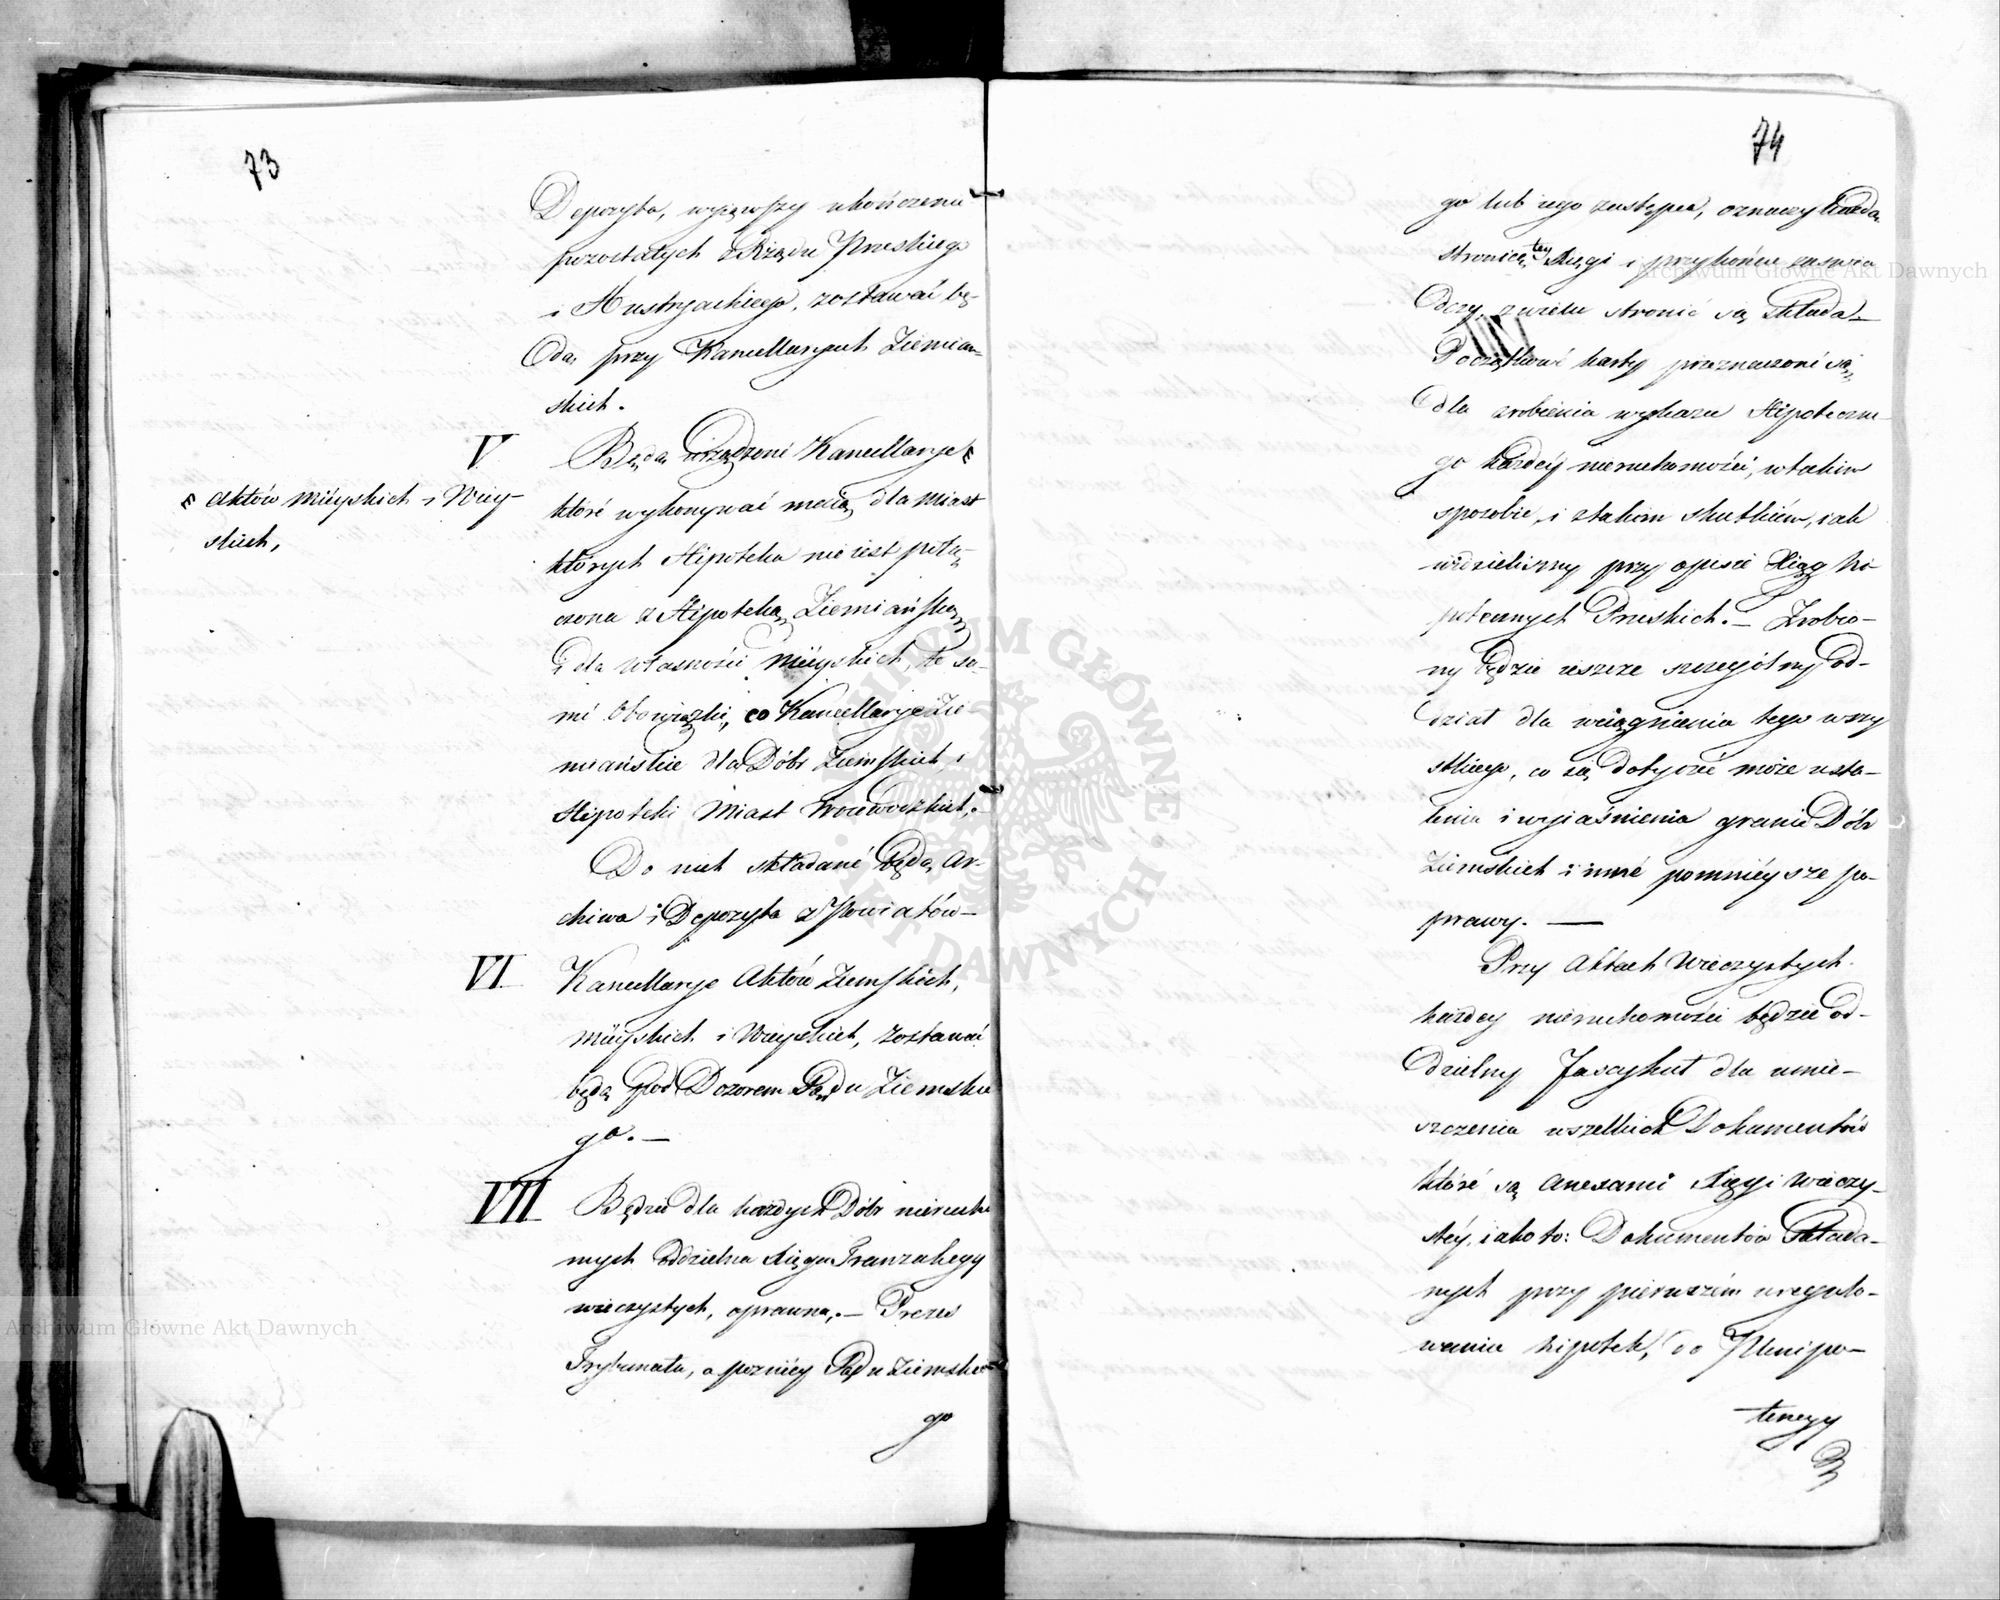 73
Depozyta, wyjąwszy ukończenia
pozostałych z Rządu Pruskiego
i Austryackiego, zostawać bę-
dą przy Kancellaryach Ziemian-
skich.
V
Będą urządzone Kancellarye
Aktów Mieyskich i Wiey-
skich,
które wykonywać maią dla Miast
których Hipoteka nie iest połą-
czona z Hipoteką Ziemiańską,
i dla własności Mieyskich, te sa-
me Obowiązki, co Kancellarye Zie-
miańskie dla Dóbr Ziemskich, i
Hipoteki Miast Woiewodzkich.
Do nich składane będą Ar-
chiwa i Depozyta z Powiatów—
VI
Kancellarye Aktów Ziemskich,
Mieyskich i Wieyskich, zostawać
będą pod Dozorem Sądu Ziemskie
go.—
VII
Będzie dla każdych Dóbr nierucho
mych oddzielna Xięga Tranzakcyy
wieczystych, oprawna,.— Prezes
Trybunału, a pozniey Sądu Ziemskie
go
74
go lub iego zastępca, oznaczy każdą
stronicę tey Xięgi i przykońcu zaswia
dczy, z wielu stronic są składa—
Początkowe karty przeznaczone są,
dla zrobienia wykazu Hipoteczne
go każdéy nieruchomości, w takim
sposobie, i z takim skutkiem, iak
widzieliśmy przy opisie Xiąg hi
potecznych Pruskich.— Zrobio-
ny będzie ieszcze szczególny od-
dział dla wciągnienia tego wszy
stkiego, co się dotyczeć może usta-
lenia i wyiaśnienia granic Dóbr
Ziemskich i inné pomnieysze po-
prawy. —
Przy Aktach Wieczystych
każdey nieruchomości będzie od-
dzielny Fascykuł dla umie-
szczenia wszelkich Dokumentów
które są anexami Xięgi wieczy-
stéy, iako to: Dokumentów składa-
nych przy pierwszém uregulo-
waniu hipotek, do Plenipo-
tencyy